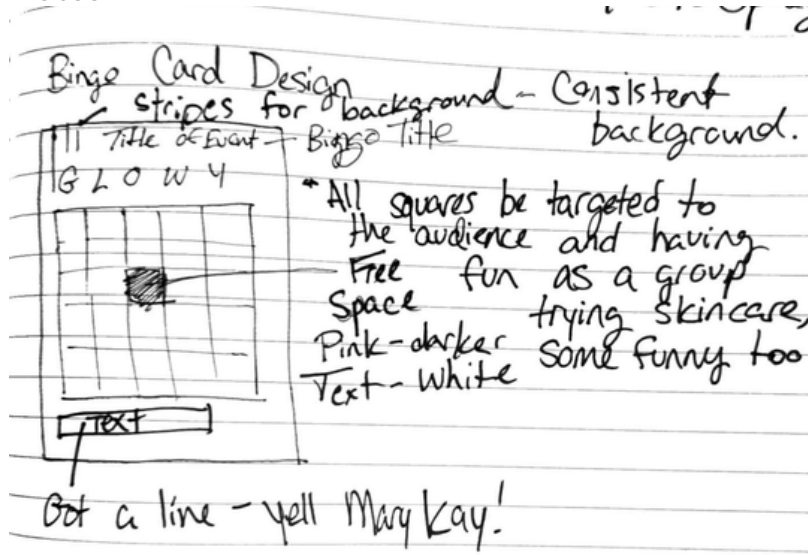 Bingo Card Design
stripes for background - Consistent
background.
Title of Event - Bingo Title
G L O W Y
* All squares be targeted to
the audience and having
fun as a group
trying skincare,
some funny too
Free
Space
Pink - darker
Text - White
TEXT
Got a line - yell Mary Kay!